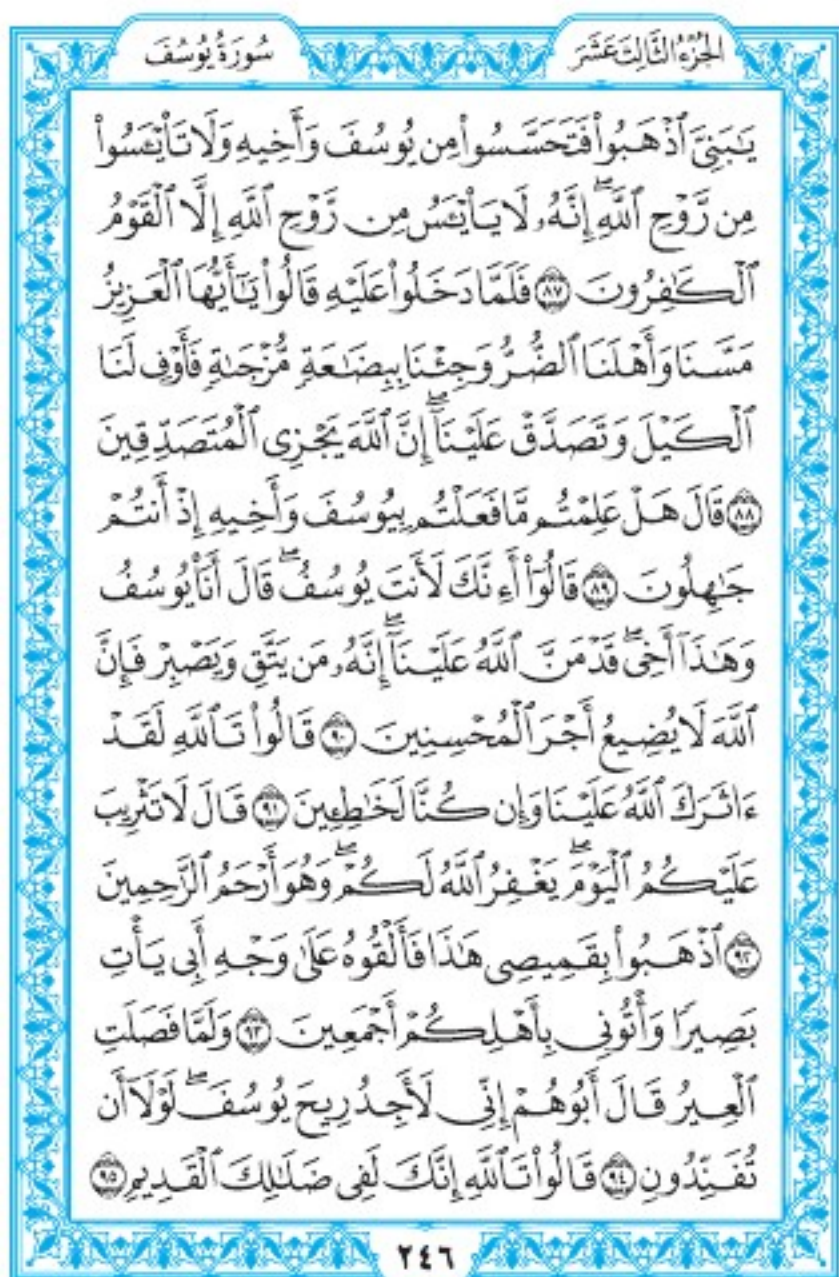 الجُزْءُ الثَّالِثَ عَشَرَ
سُورَةُ يُوسُفَ
يَٰبَنِيَّ ٱذْهَبُوا۟ فَتَحَسَّسُوا۟ مِن يُوسُفَ وَأَخِيهِ وَلَا تَا۟يْـَٔسُوا۟
مِن رَّوْحِ ٱللَّهِ ۖ إِنَّهُۥ لَا يَا۟يْـَٔسُ مِن رَّوْحِ ٱللَّهِ إِلَّا ٱلْقَوْمُ
ٱلْكَٰفِرُونَ ٨٧ فَلَمَّا دَخَلُوا۟ عَلَيْهِ قَالُوا۟ يَٰٓأَيُّهَا ٱلْعَزِيزُ
مَسَّنَا وَأَهْلَنَا ٱلضُّرُّ وَجِئْنَا بِبِضَٰعَةٍ مُّزْجَىٰةٍ فَأَوْفِ لَنَا
ٱلْكَيْلَ وَتَصَدَّقْ عَلَيْنَآ ۖ إِنَّ ٱللَّهَ يَجْزِى ٱلْمُتَصَدِّقِينَ
٨٨ قَالَ هَلْ عَلِمْتُم مَّا فَعَلْتُم بِيُوسُفَ وَأَخِيهِ إِذْ أَنتُمْ
جَٰهِلُونَ ٨٩ قَالُوٓا۟ أَءِنَّكَ لَأَنتَ يُوسُفُ ۖ قَالَ أَنَا۠ يُوسُفُ
وَهَٰذَآ أَخِى ۖ قَدْ مَنَّ ٱللَّهُ عَلَيْنَآ ۖ إِنَّهُۥ مَن يَتَّقِ وَيَصْبِرْ فَإِنَّ
ٱللَّهَ لَا يُضِيعُ أَجْرَ ٱلْمُحْسِنِينَ ٩٠ قَالُوا۟ تَٱللَّهِ لَقَدْ
ءَاثَرَكَ ٱللَّهُ عَلَيْنَا وَإِن كُنَّا لَخَٰطِـِٔينَ ٩١ قَالَ لَا تَثْرِيبَ
عَلَيْكُمُ ٱلْيَوْمَ ۖ يَغْفِرُ ٱللَّهُ لَكُمْ ۖ وَهُوَ أَرْحَمُ ٱلرَّٰحِمِينَ
٩٢ ٱذْهَبُوا۟ بِقَمِيصِى هَٰذَا فَأَلْقُوهُ عَلَىٰ وَجْهِ أَبِى يَأْتِ
بَصِيرًا وَأْتُونِى بِأَهْلِكُمْ أَجْمَعِينَ ٩٣ وَلَمَّا فَصَلَتِ
ٱلْعِيرُ قَالَ أَبُوهُمْ إِنِّى لَأَجِدُ رِيحَ يُوسُفَ ۖ لَوْلَآ أَن
تُفَنِّدُونِ ٩٤ قَالُوا۟ تَٱللَّهِ إِنَّكَ لَفِى ضَلَٰلِكَ ٱلْقَدِيمِ ٩٥
٢٤٦